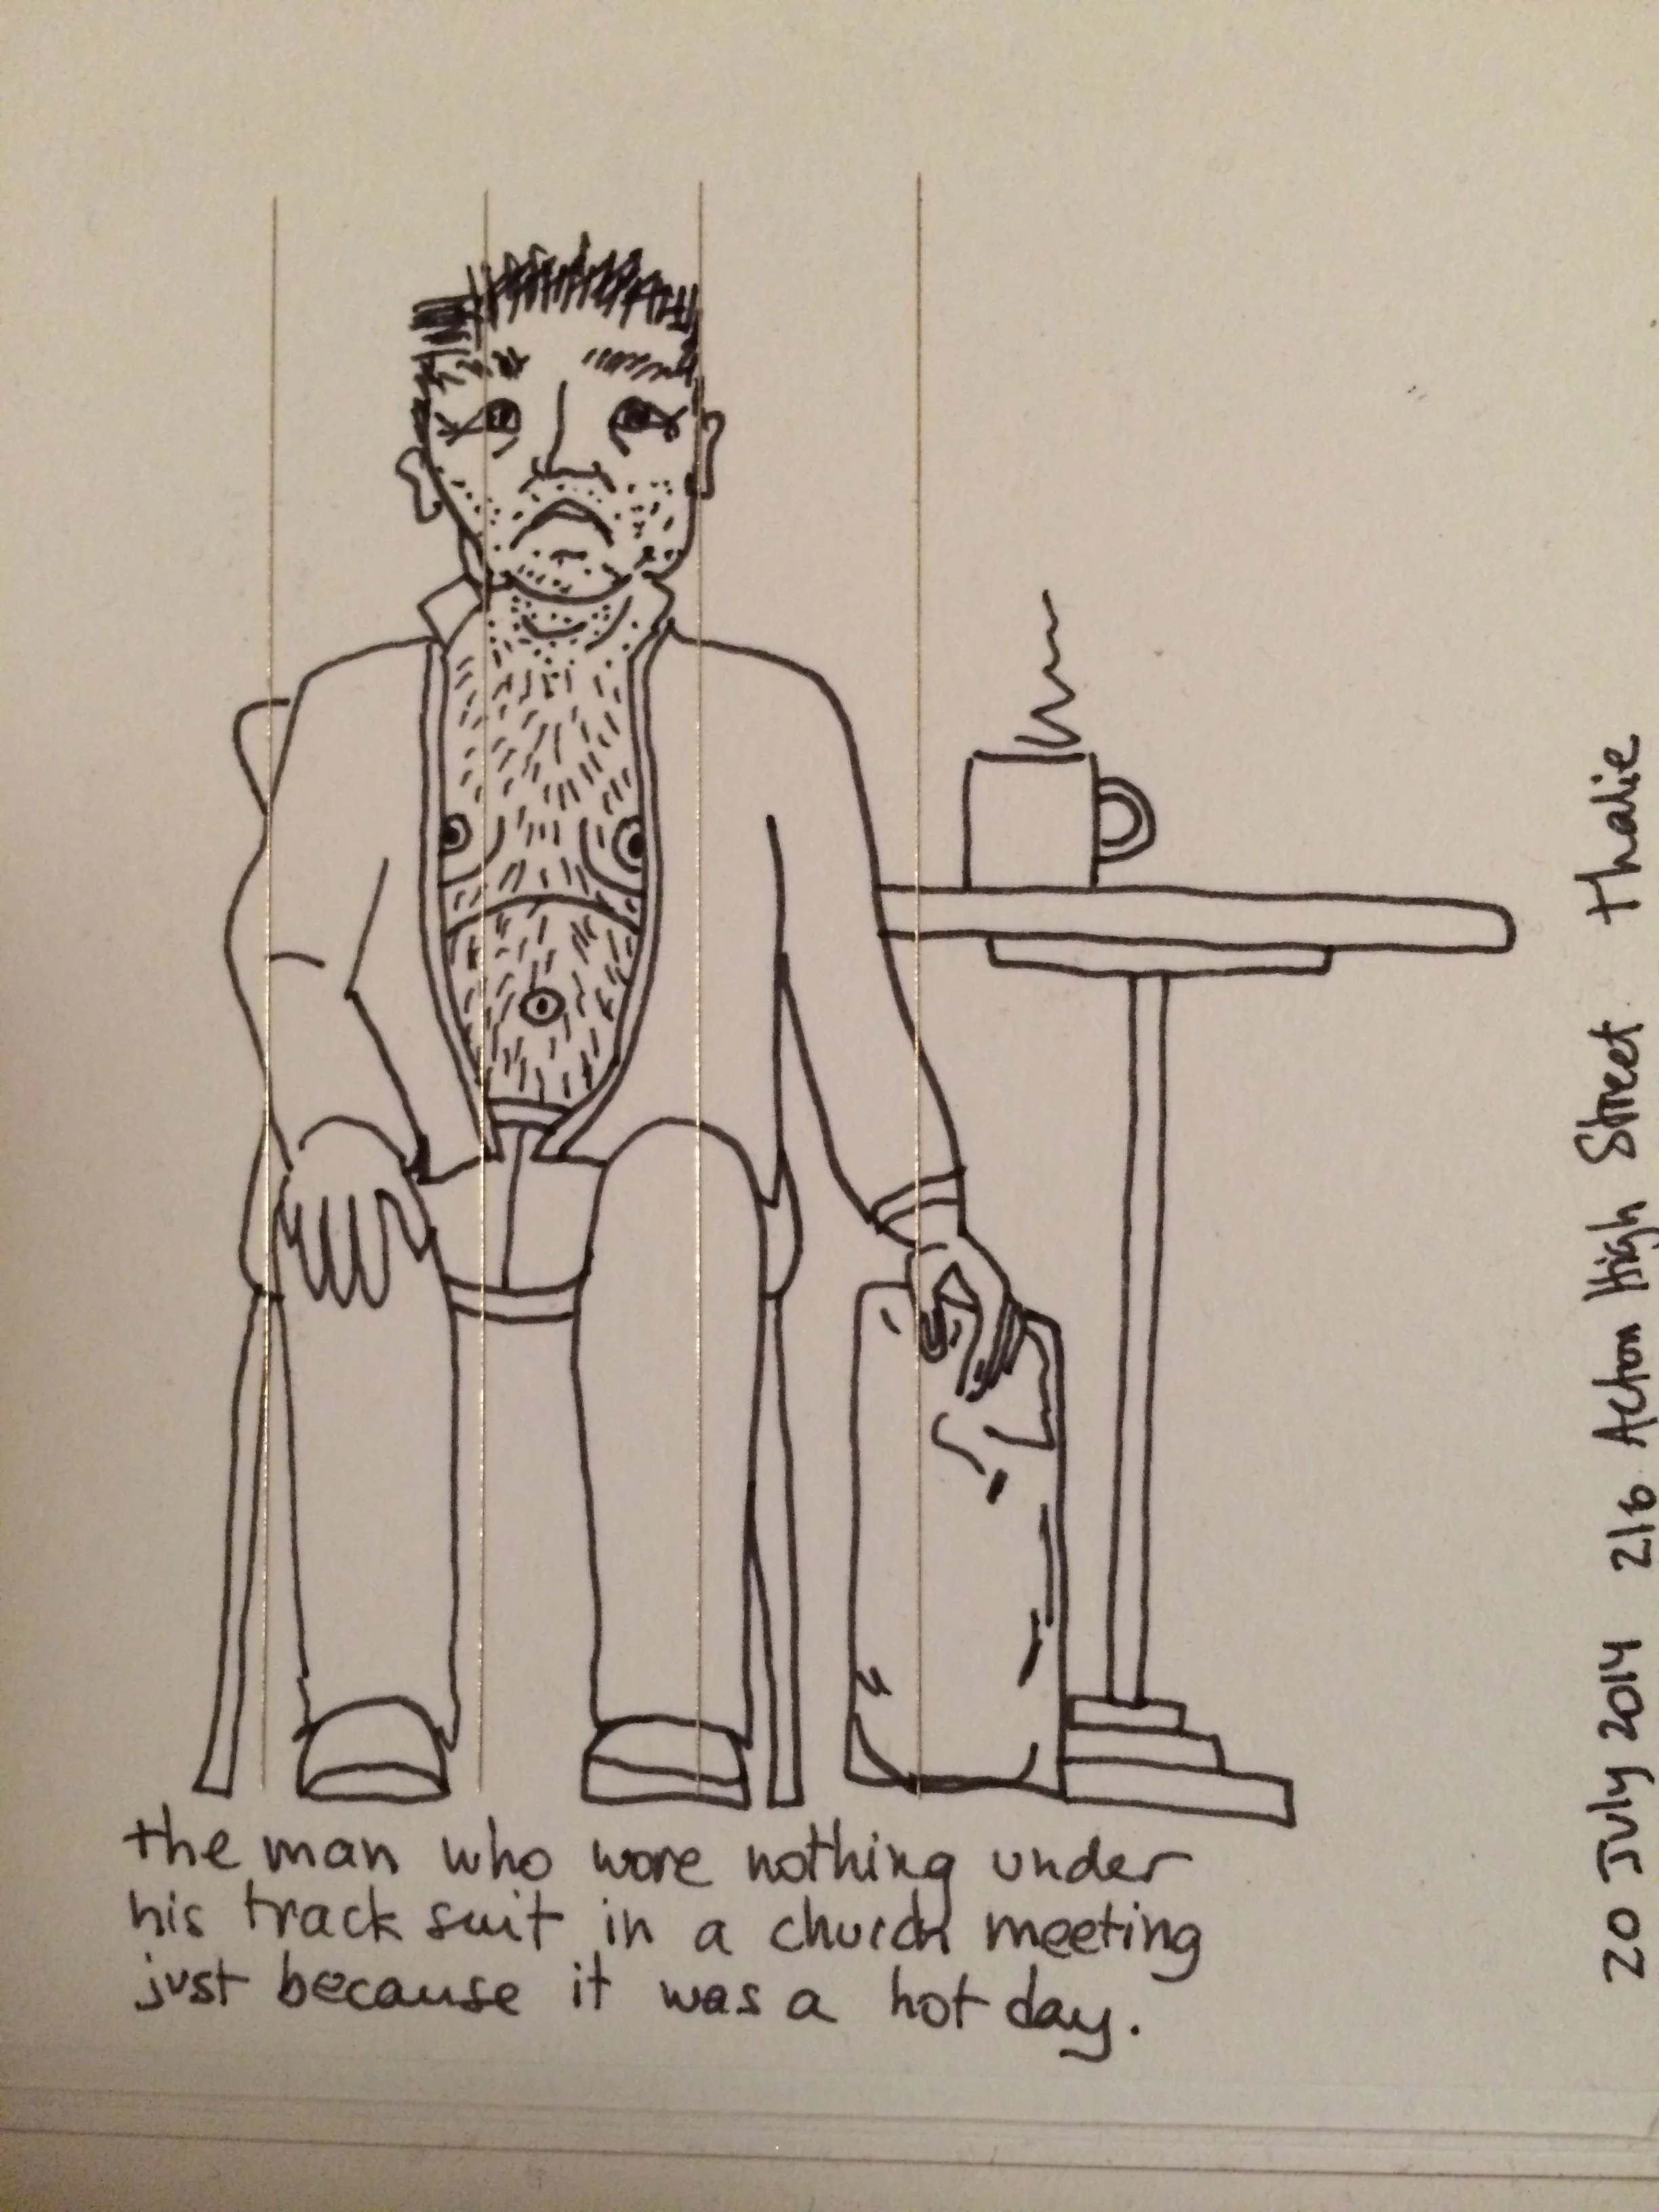 the man who wore nothing under
his track suit in a church meeting
just because it was a hot day.
20 July 2014 216 Acton High Street Thalie